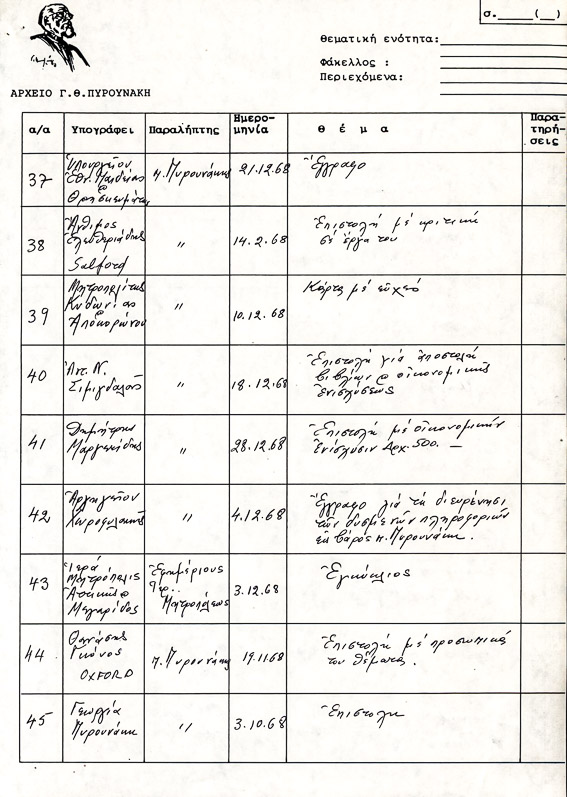 σ.____(__)
Θεματική ενότητα:
Φάκελλος :
Περιεχόμενα:
ΑΡΧΕΙΟ Γ.Θ.ΠΥΡΟΥΝΑΚΗ
α/α Υπογράφει Παραλήπτης Ημερομηνία Θ έ μ α Παρατηρήσεις
37 Ὑπουργεῖον Ἐθν. Παιδείας Θρησκευμάτων π. Πυρουνάκης 21.12.68 Ἔγγραφο
38 Ἄνθιμος Ἐλευθεριάδης Salford " 14.2.68 Ἐπιστολή μέ κριτική σέ ἔργα του
39 Μητροπολίτης Κυδωνίας Ἀποκορώνου " 10.12.68 Κάρτα μέ εὐχές
40 Ἀντ. Ν. " 18.12.68 Ἐπιστολή γιά ἀποστολή βιβλίων οἰκονομικῆς ἐνισχύσεως
41 Δημήτρης " 28.12.68 Ἐπιστολή μέ οἰκονομικήν ἐνίσχυσιν Δρχ. 500. —
42 Ἀρχηγεῖον Χωροφυλακῆς " 4.12.68 Ἔγγραφο γιά τή διευρένησι τῶν δυσμενῶν πληροφοριῶν εἰς βάρος π. Πυρουνάκη.
43 Ἱερά Μητρόπολις Ἀττικῆς Μεγαρίδος Ἐφημέριους Ἱερ. Μητροπόλεως 3.12.68 Ἐγκύκλιος
44 Θανάσης OXFORD π. Πυρουνάκης 19.11.68 Ἐπιστολή μέ προσωπικά του θέματα.
45 Γεωργία Πυρουνάκη " 3.10.68 Ἐπιστολή